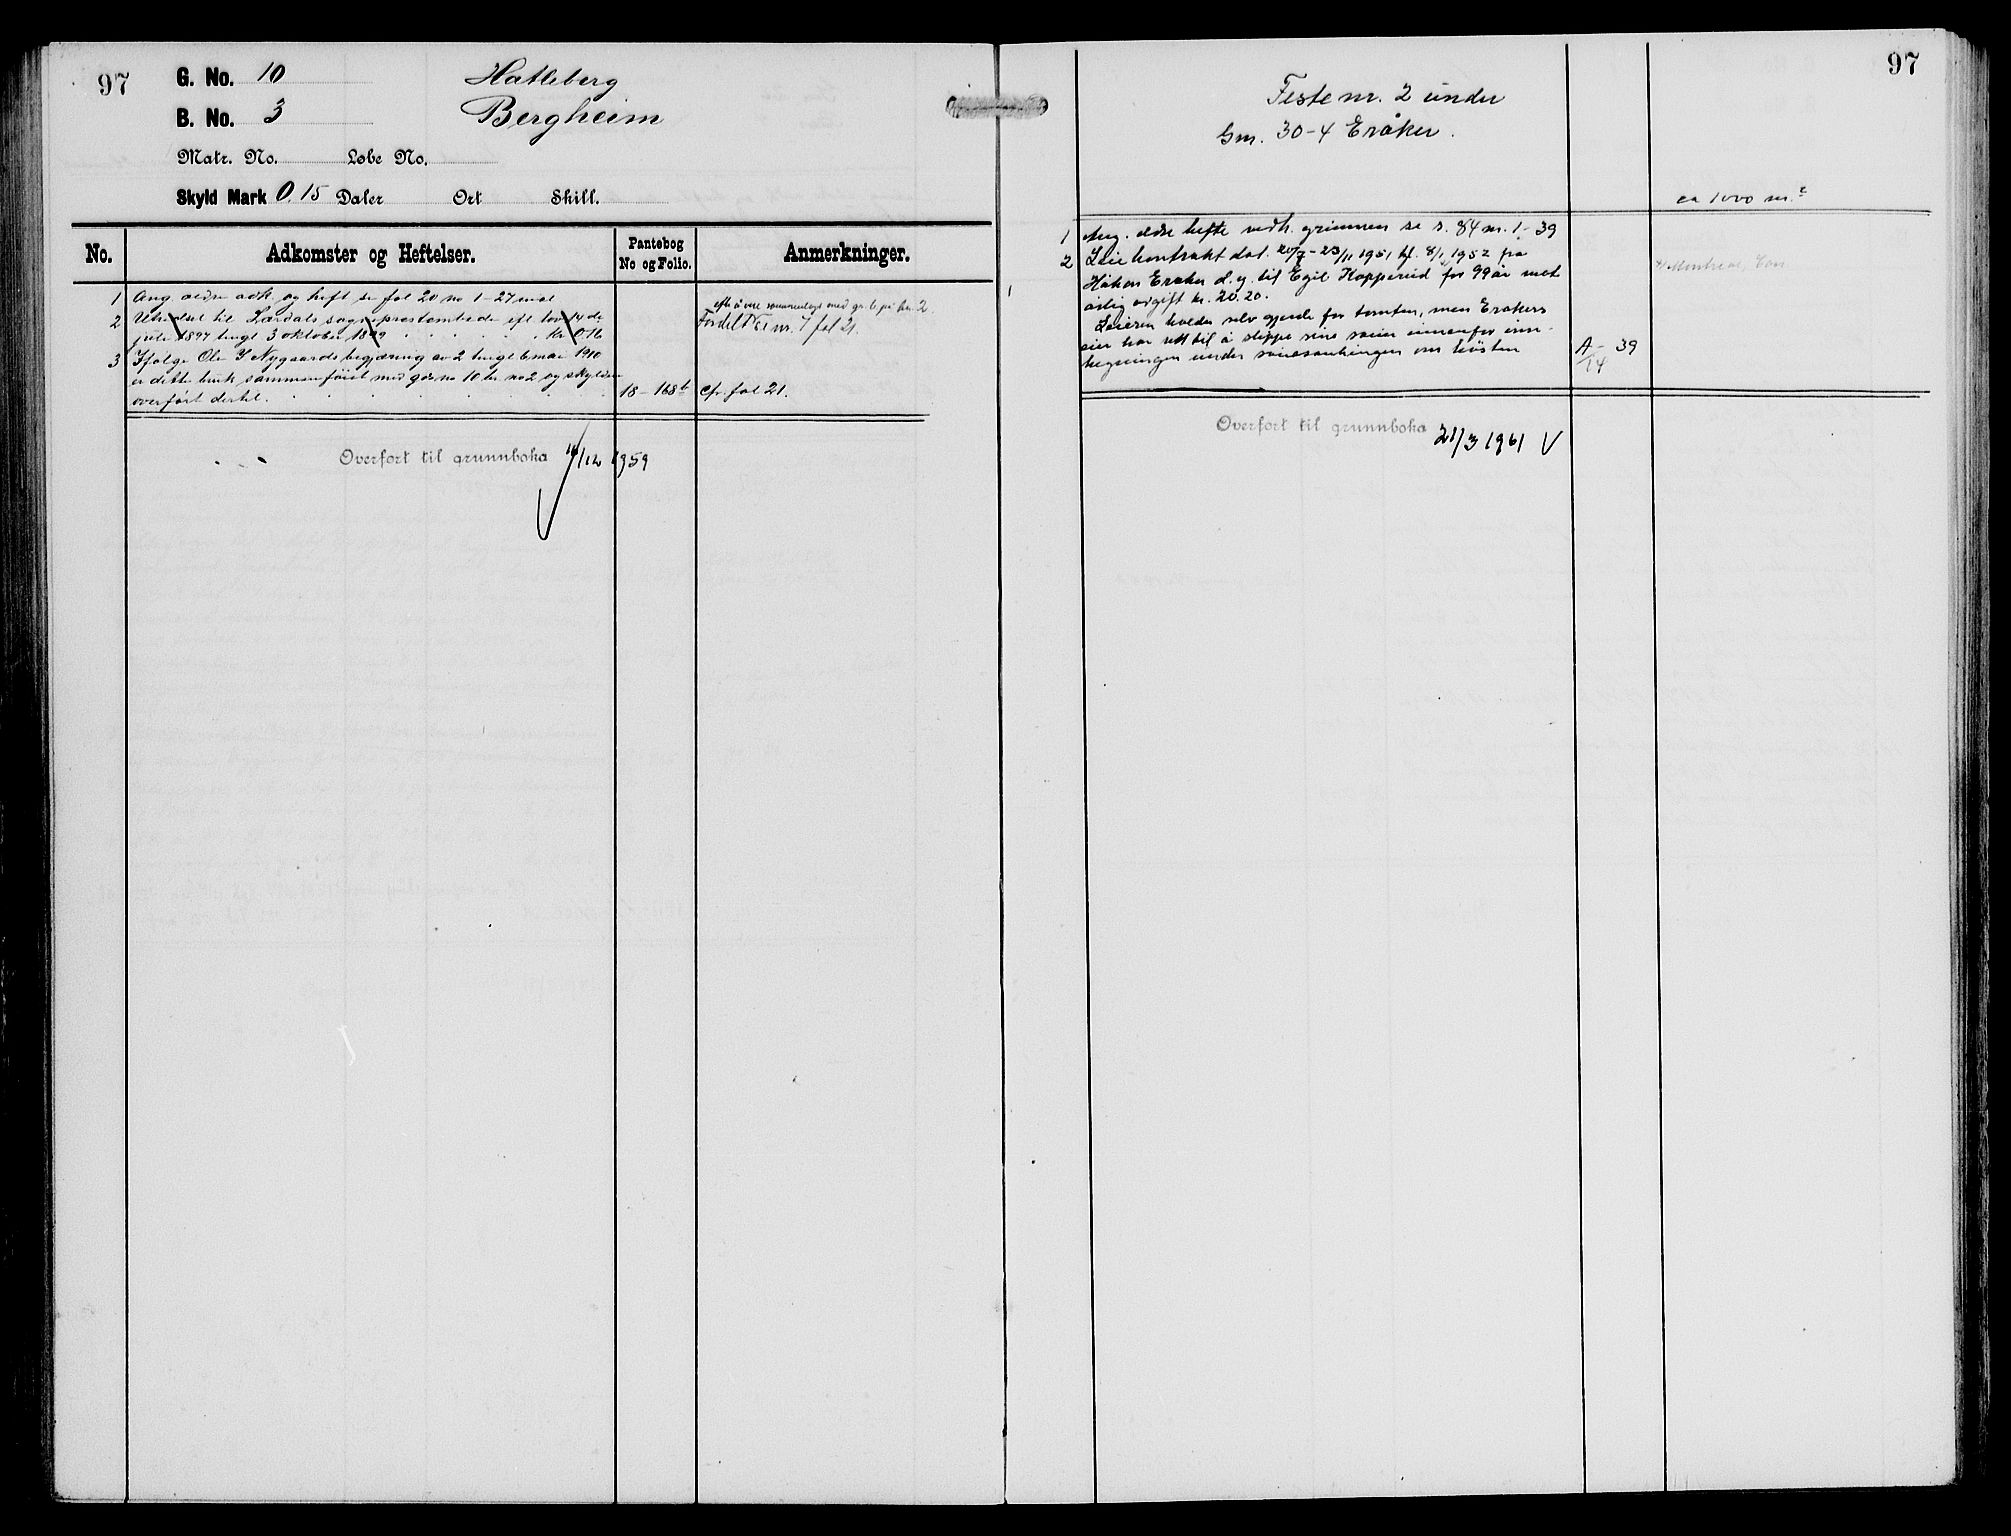 97
G. No. 10
Hatleberg
B. No. 3
Bergheim
Matr. No. Løbe No.
Skyld Mark 0.15 Daler Ort Skill.
No. Adkomster og Heftelser. Pantebog No og Folio. Anmerkninger.
1 Ang. ældre adk. og heft se fol 20 no 1-27 incl
2 til Lærdals sogneprestembede efl lov 14 de
juli 1897 tingl 3 oktober 1899 . . . . kr 0.16
Fordelt se nr. 7 fol 21.
3 Ifølge Ole I Nygaards begjæring av 2 tingl 6 mai 1910
er dette bruk sammenføiet med gds no 10 br. no 2 og skylden
overført dertil. . . . . . . 18-168b cfr. fol 21.
Overført til grunnboka 16/12 1959
97
Feste nr. 2 under
Gnr. 30-4 Eråker.
ca 1000 m.²
1 Ang. eldre hefte vedk. grunnen se s. 84 nr. 1-39
2 Leiekontrakt dat. 20/7-23/11 1951 tgl. 8/1 1952 fra
Håkon Eråker d.y. til Egil Kopperud for 99 år mot
årlig avgift kr. 20.20.
Leieren holder selv gjerde for tomten, men Eråkers
eier har rett til å slippe sine sauer innenfor inn-
hegningen under sauesankingen om høsten A-39
14
Overført til grunnboka 21/3 1961 V